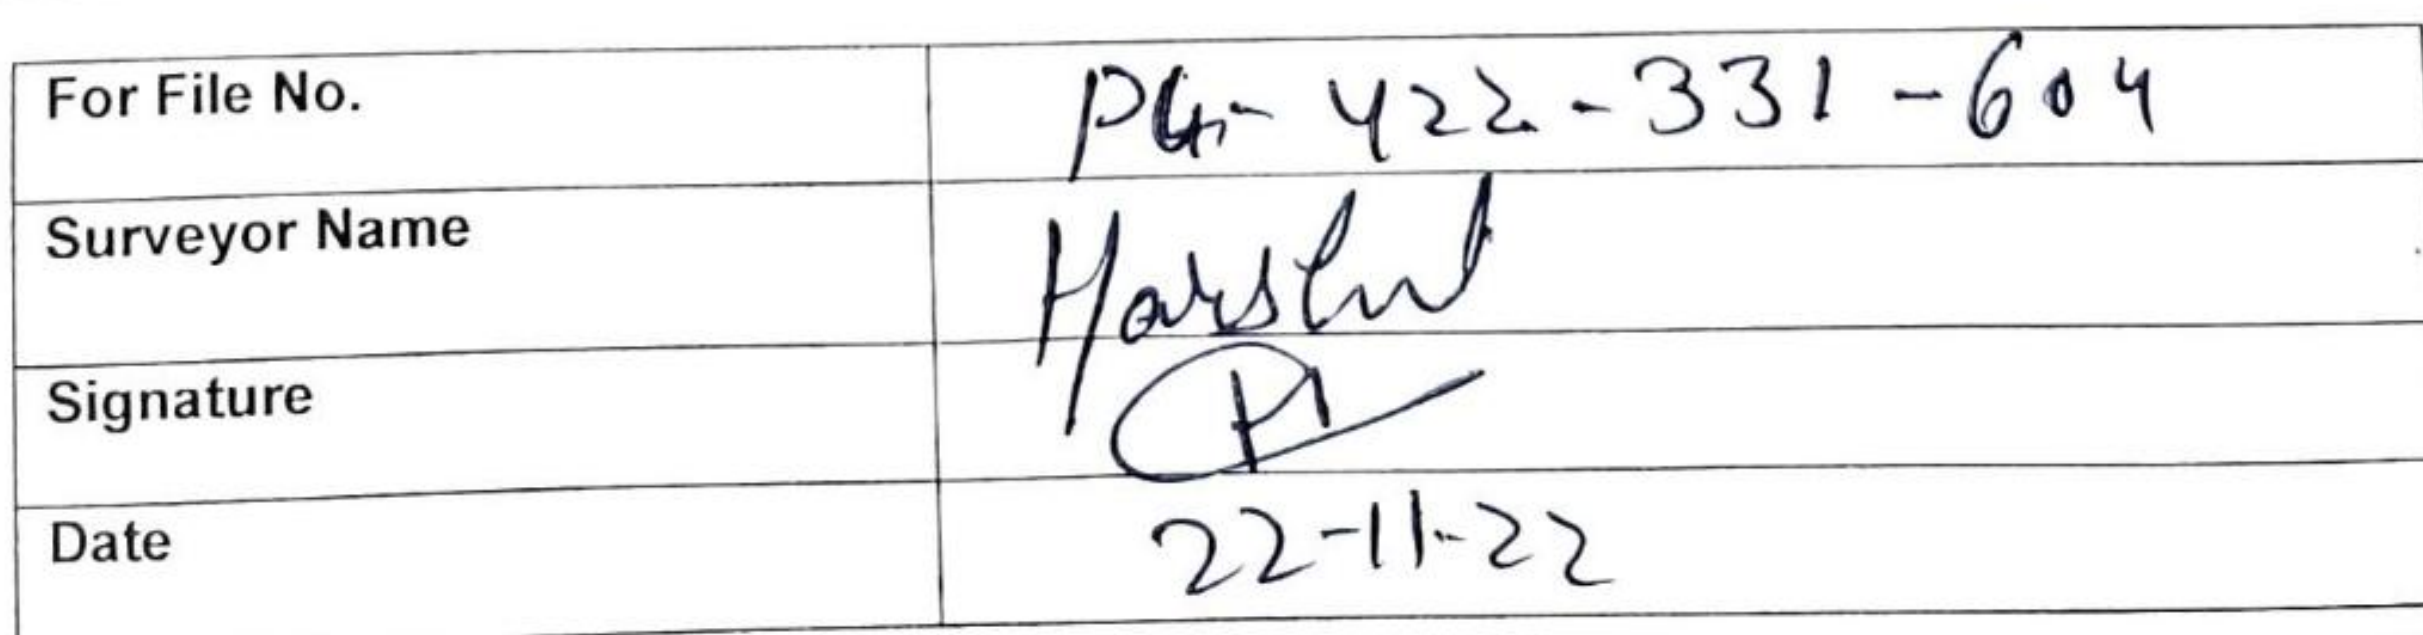 For File No. PG-422-331-604
Surveyor Name Harshal
Signature
Date 22-11-22